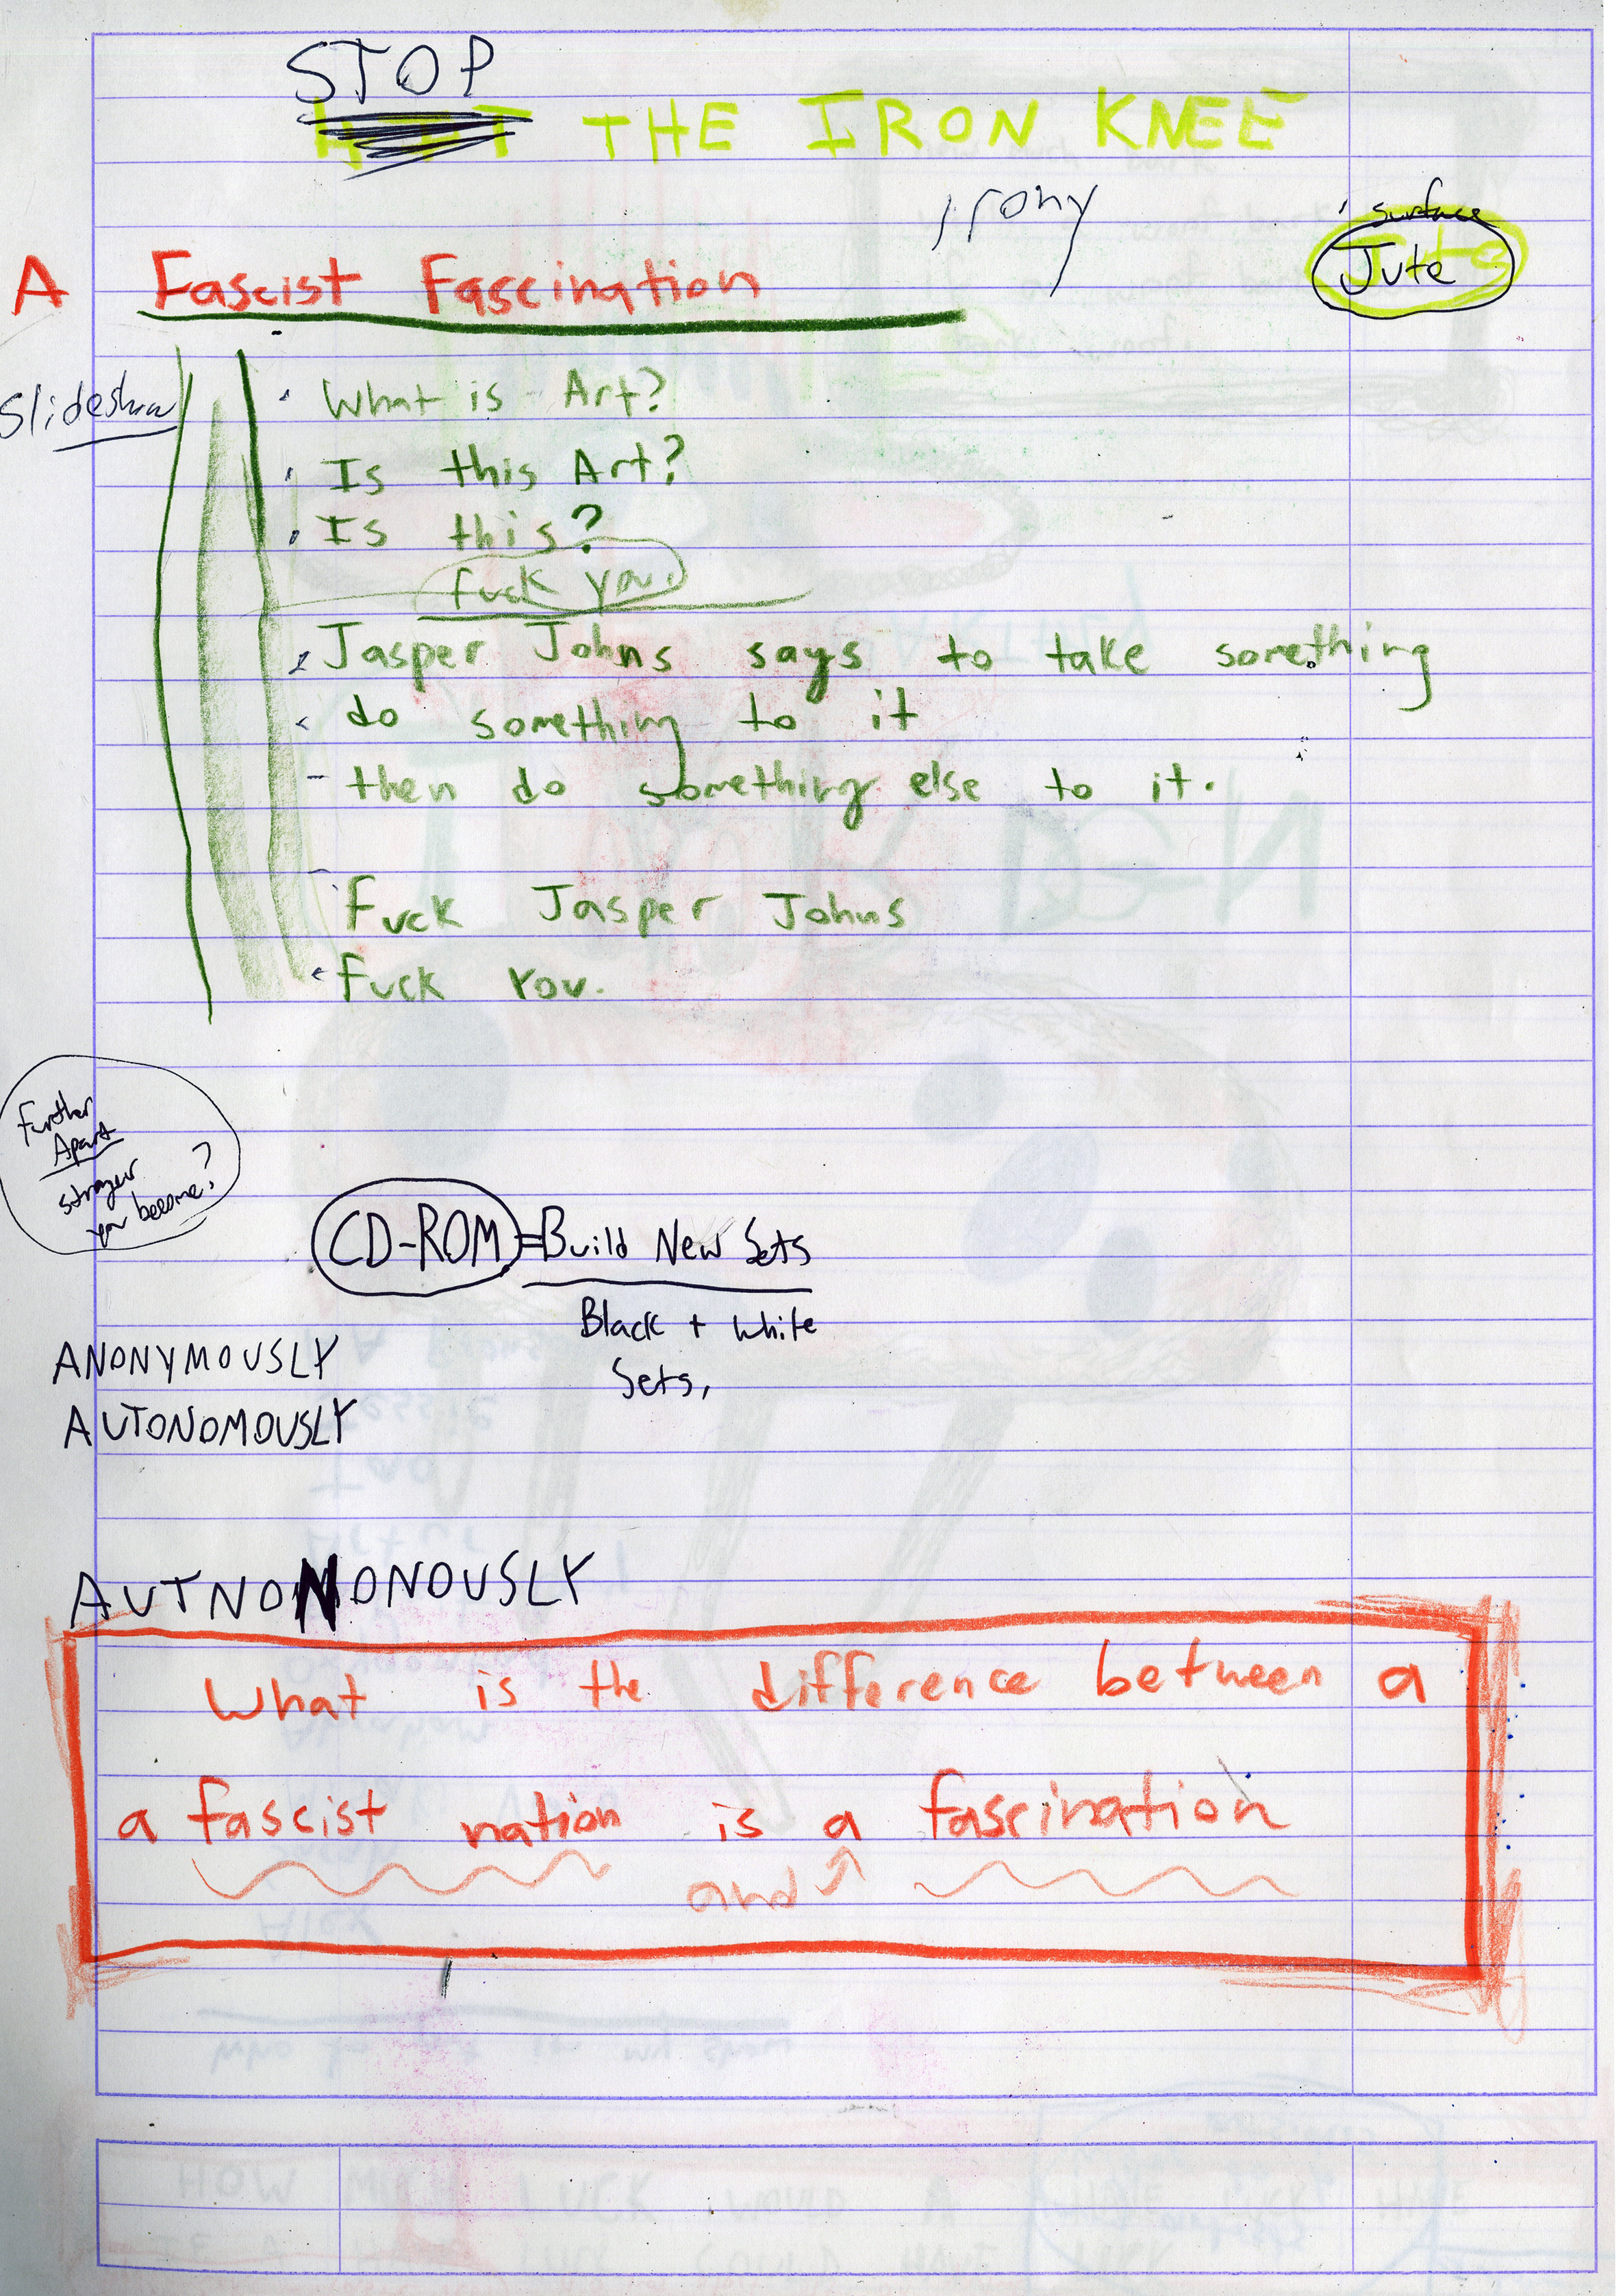 STOP
THE IRON KNEE
irony
surface
Jute
A Fascist Fascination
Slideshow
What is Art?
Is this Art?
Is this?
fuck you.
Jasper Johns says to take something
do something to it
- then do something else to it.
Fuck Jasper Johns
Fuck You.
Further
Apart
stranger
you become?
CD-ROM = Build New Sets
Black + White
Sets,
ANONYMOUSLY
AUTONOMOUSLY
AUTNONONOUSLY
What is the difference between a
a fascist nation is a fascination
and